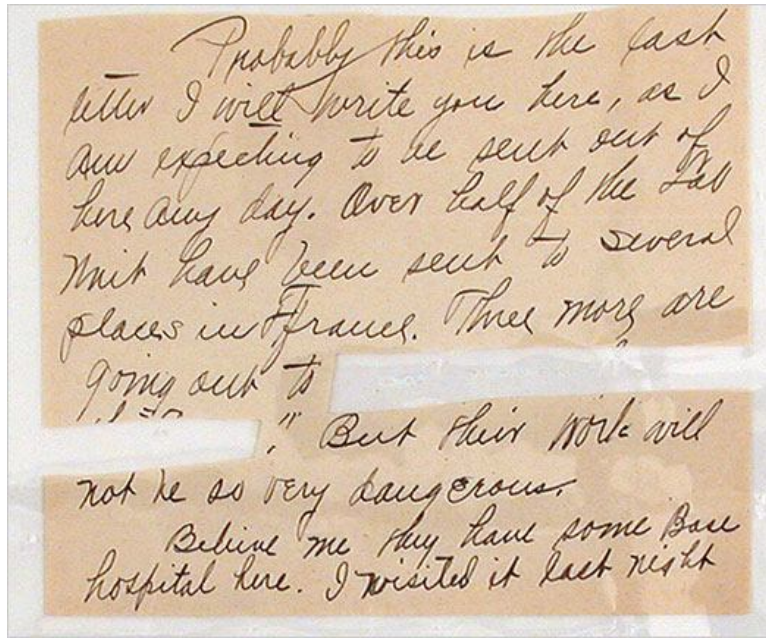 Probably this is the last
letter I will write you here, as I
am expecting to be sent out of
here any day. Over half of the Lab
Unit have been sent to several
places in France. Three more are
going out to
." But their work will
not be so very dangerous.
Believe me they have some Base
hospital here. I visited it last night